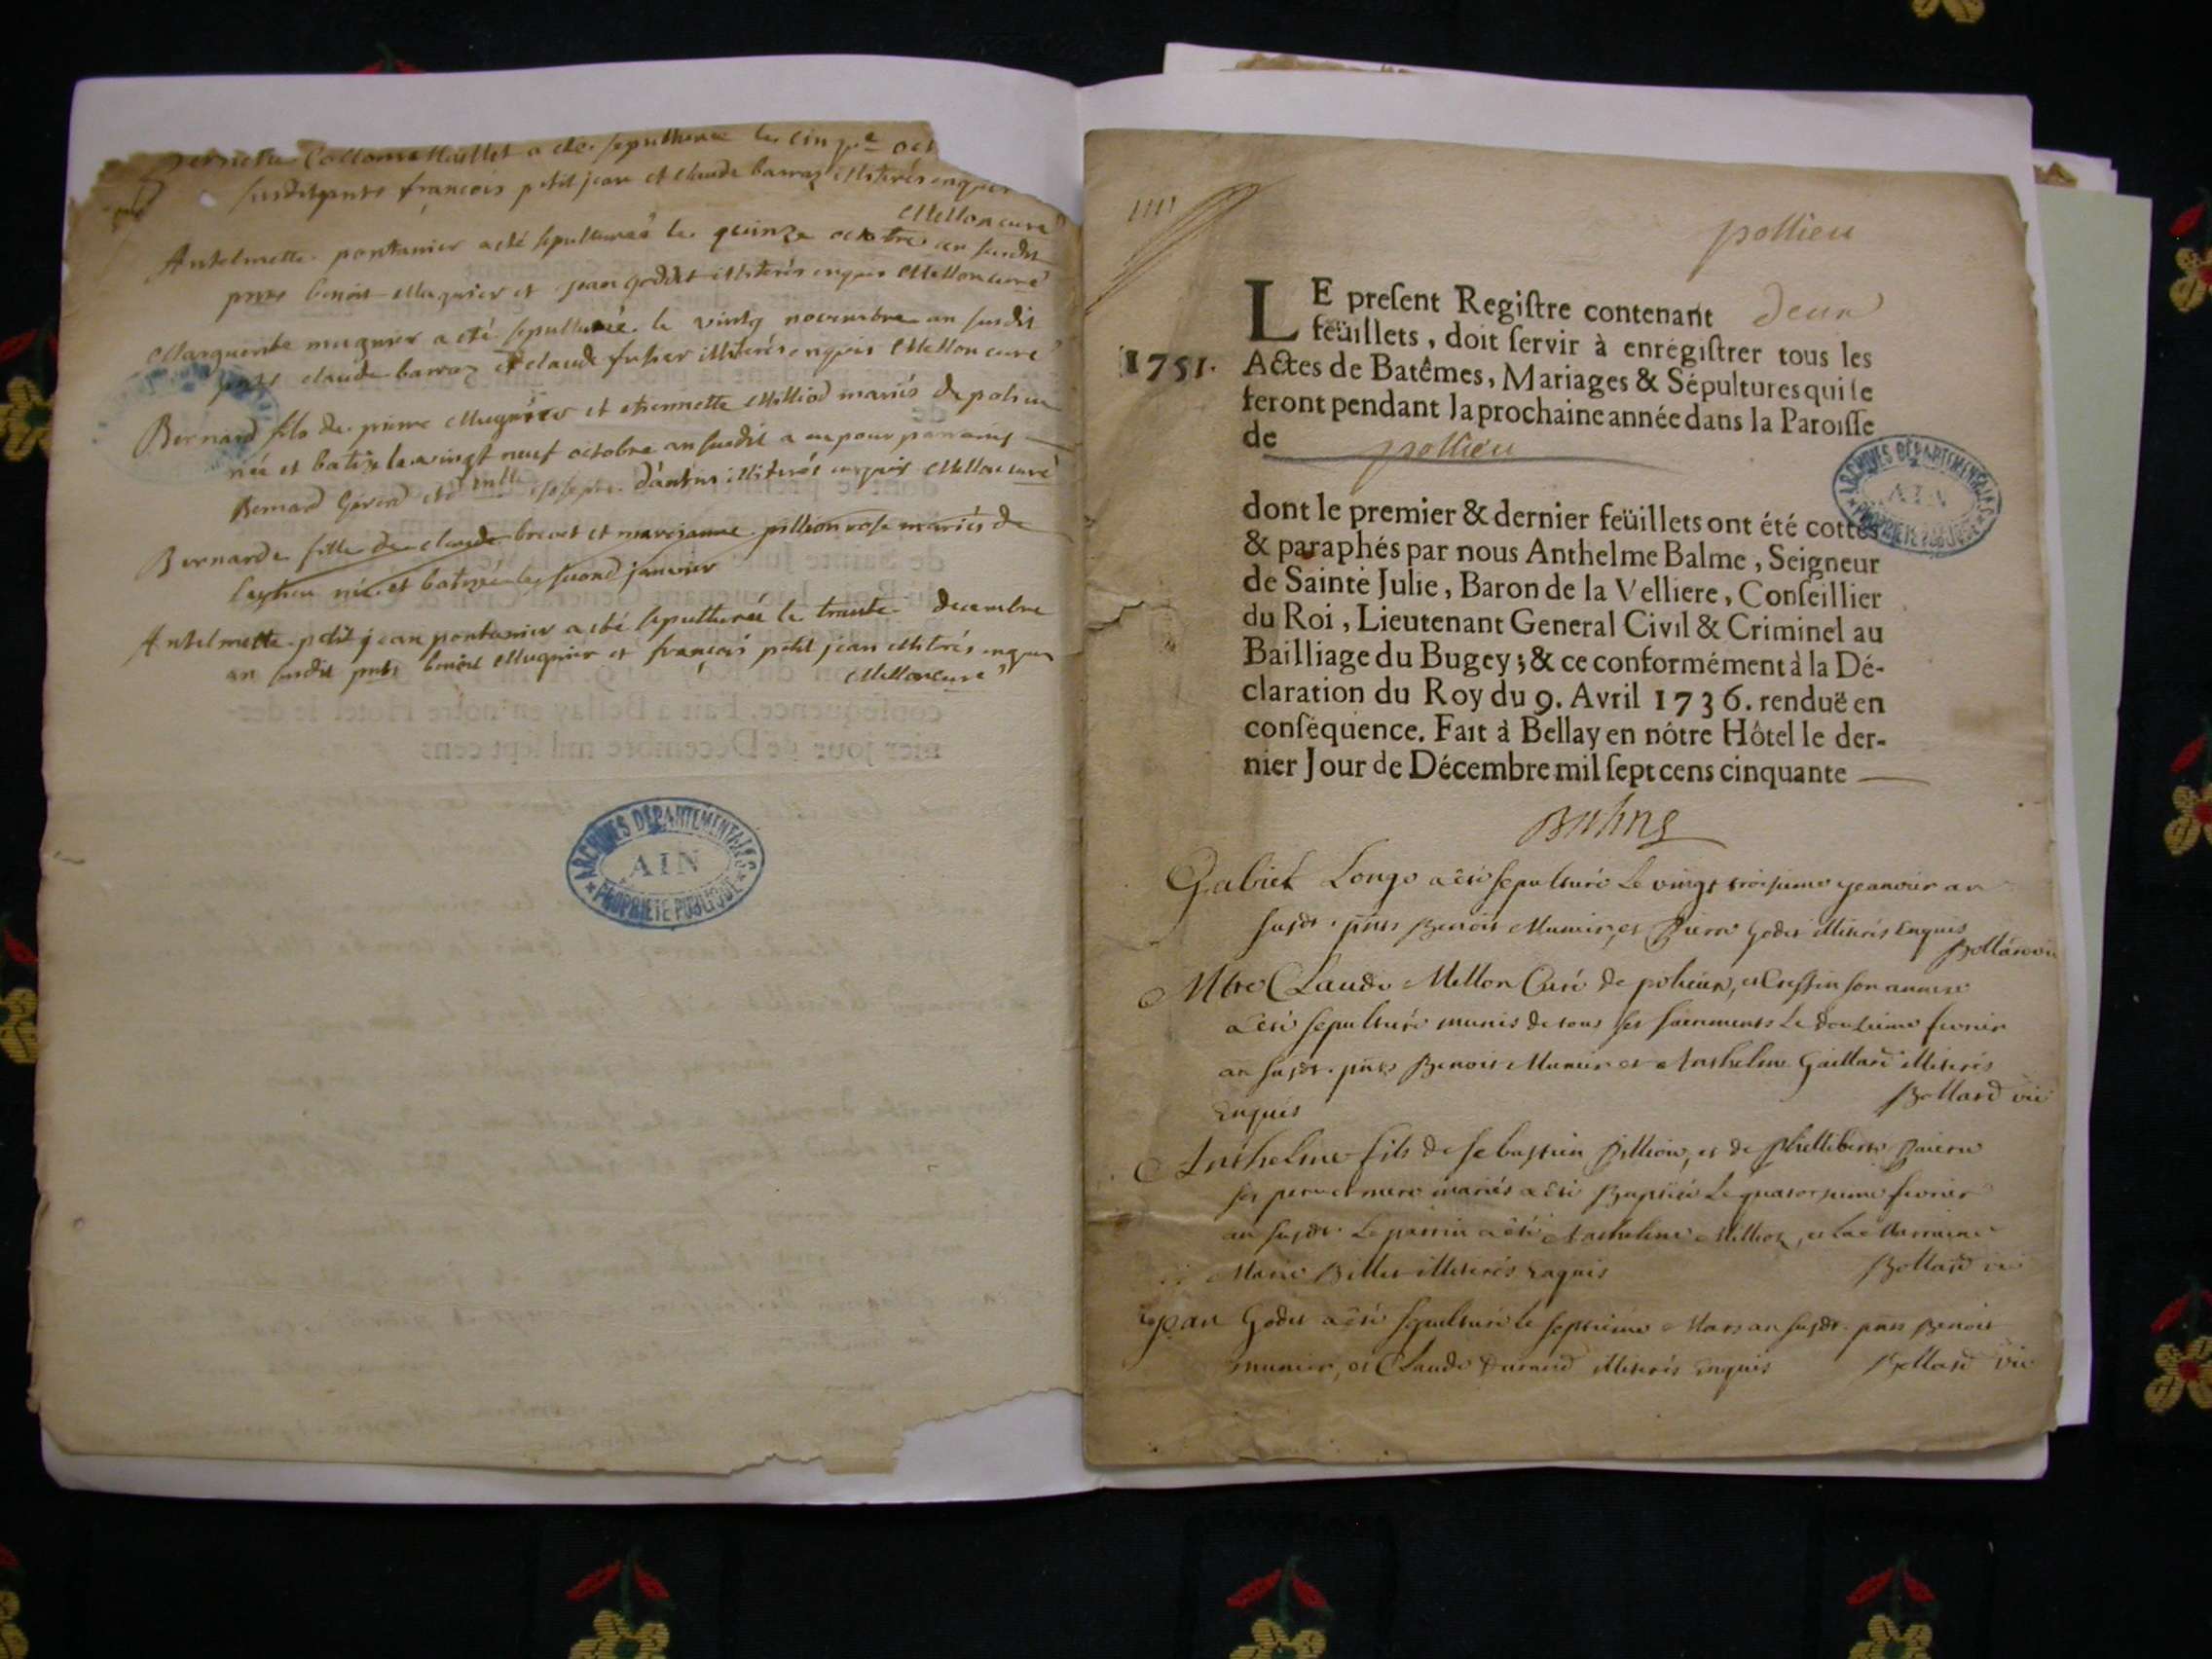 a été sepulturée le cinqe oct
susdit pnts françois petit jean et claude barraz illiterés enquis
Mellon curé
Antelmette pontanier a eté sepulturée le quinze octobre an susdit
pnts benoit Mugnier et jean godet illiterés enquis Mellon curé
Marguerite mugnier a eté sepulturée le vintg novembre an susdit
pnts claude barraz et claude fusier illiterés enquis Mellon curé
Bernard fils de pierre Mugnier et etiennette Milliod mariés de polieu
née et batizé le vingt neuf octobre an susdit a eu pour parrains
Bernard et illiterés enquis Mellon curé
Bernarde fille de claude brevet et marianne pillion rose mariés de
née et batizée le second janvier
Antelmette petit jean pontanier a eté sepulturée le trente decembre
an susdit pnts benoit Mugnier et françois petit jean illiterés enquis
Mellon curé
ARCHIVES DÉPARTEMENTALES
AIN
PROPRIÉTÉ PUBLIQUE
pollieu
LE present Registre contenant deux
feüillets, doit servir à enrégistrer tous les
1751. Actes de Batêmes, Mariages & Sépultures qui se
feront pendant la prochaine année dans la Paroisse
de pollieu
ARCHIVES DÉPARTEMENTALES
AIN
PROPRIÉTÉ PUBLIQUE
dont le premier & dernier feüillets ont été cottés
& paraphés par nous Anthelme Balme, Seigneur
de Sainte Julie, Baron de la Velliere, Conseillier
du Roi, Lieutenant General Civil & Criminel au
Bailliage du Bugey; & ce conformément à la Dé-
claration du Roy du 9. Avril 1736. renduë en
conséquence. Fait à Bellay en nôtre Hôtel le der-
nier Jour de Décembre mil sept cens cinquante
Balme
Gabriel Longe a été sepulturé Le vingt troisieme jeanvier an
susdt. pnts Benoit Munier, et Pierre Godet illiterés Enquis
Bollard vic
Mtre Claude Mellon Curé de polieux, et Cressin son annexe
a été sepulturé munis de tous ses sacrements Le douzieme fevrier
an susdt. pnts Benoit Munier et Anthelme Gaillard illiterés
Enquis Bollard vic
Anthelme fils de sebastien Pillion, et de Philliberte
ses pere et mere mariés a été Baptisé Le quatorzieme fevrier
an susdt. Le parrin a été Anthelme Milliot, et La Marraine
Marie Billet illiterés Enquis Bollard vic
jean Godet a été sepulturé le septieme Mars an susdt. pnts Benoit
munier, et Claude Durand illiterés Enquis Bollard vic